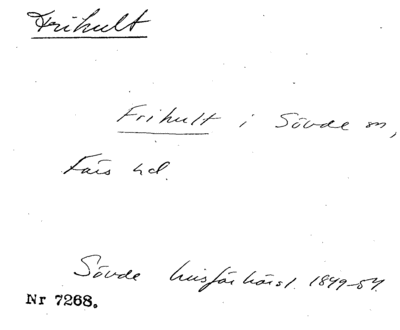 Frihult
Frihult i Sövde sn,
Färs hd.
Sövde husförhörsl. 1849-54.
Nr 7268.